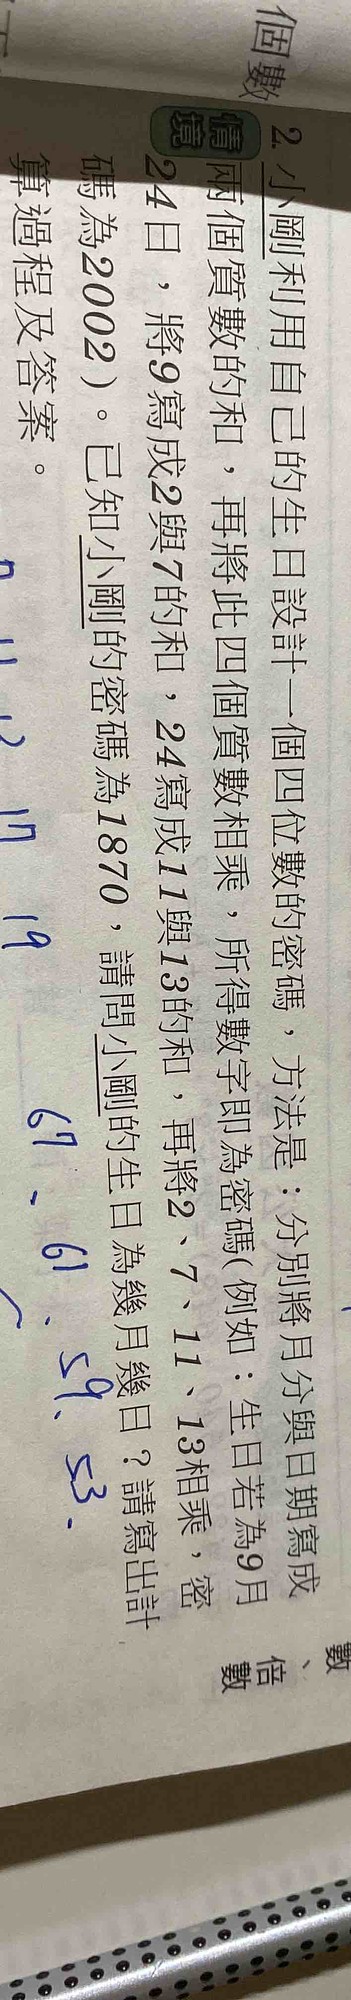 個數
2. 小剛利用自己的生日設計一個四位數的密碼，方法是：分別將月分與日期寫成
情境
兩個質數的和，再將此四個質數相乘，所得數字即為密碼(例如：生日若為9月
24日，將9寫成2與7的和，24寫成11與13的和，再將2、7、11、13相乘，密
碼為2002)。已知小剛的密碼為1870，請問小剛的生日為幾月幾日？請寫出計
算過程及答案。
11 13 17 19
67、61、59、53、
數
、
倍
數